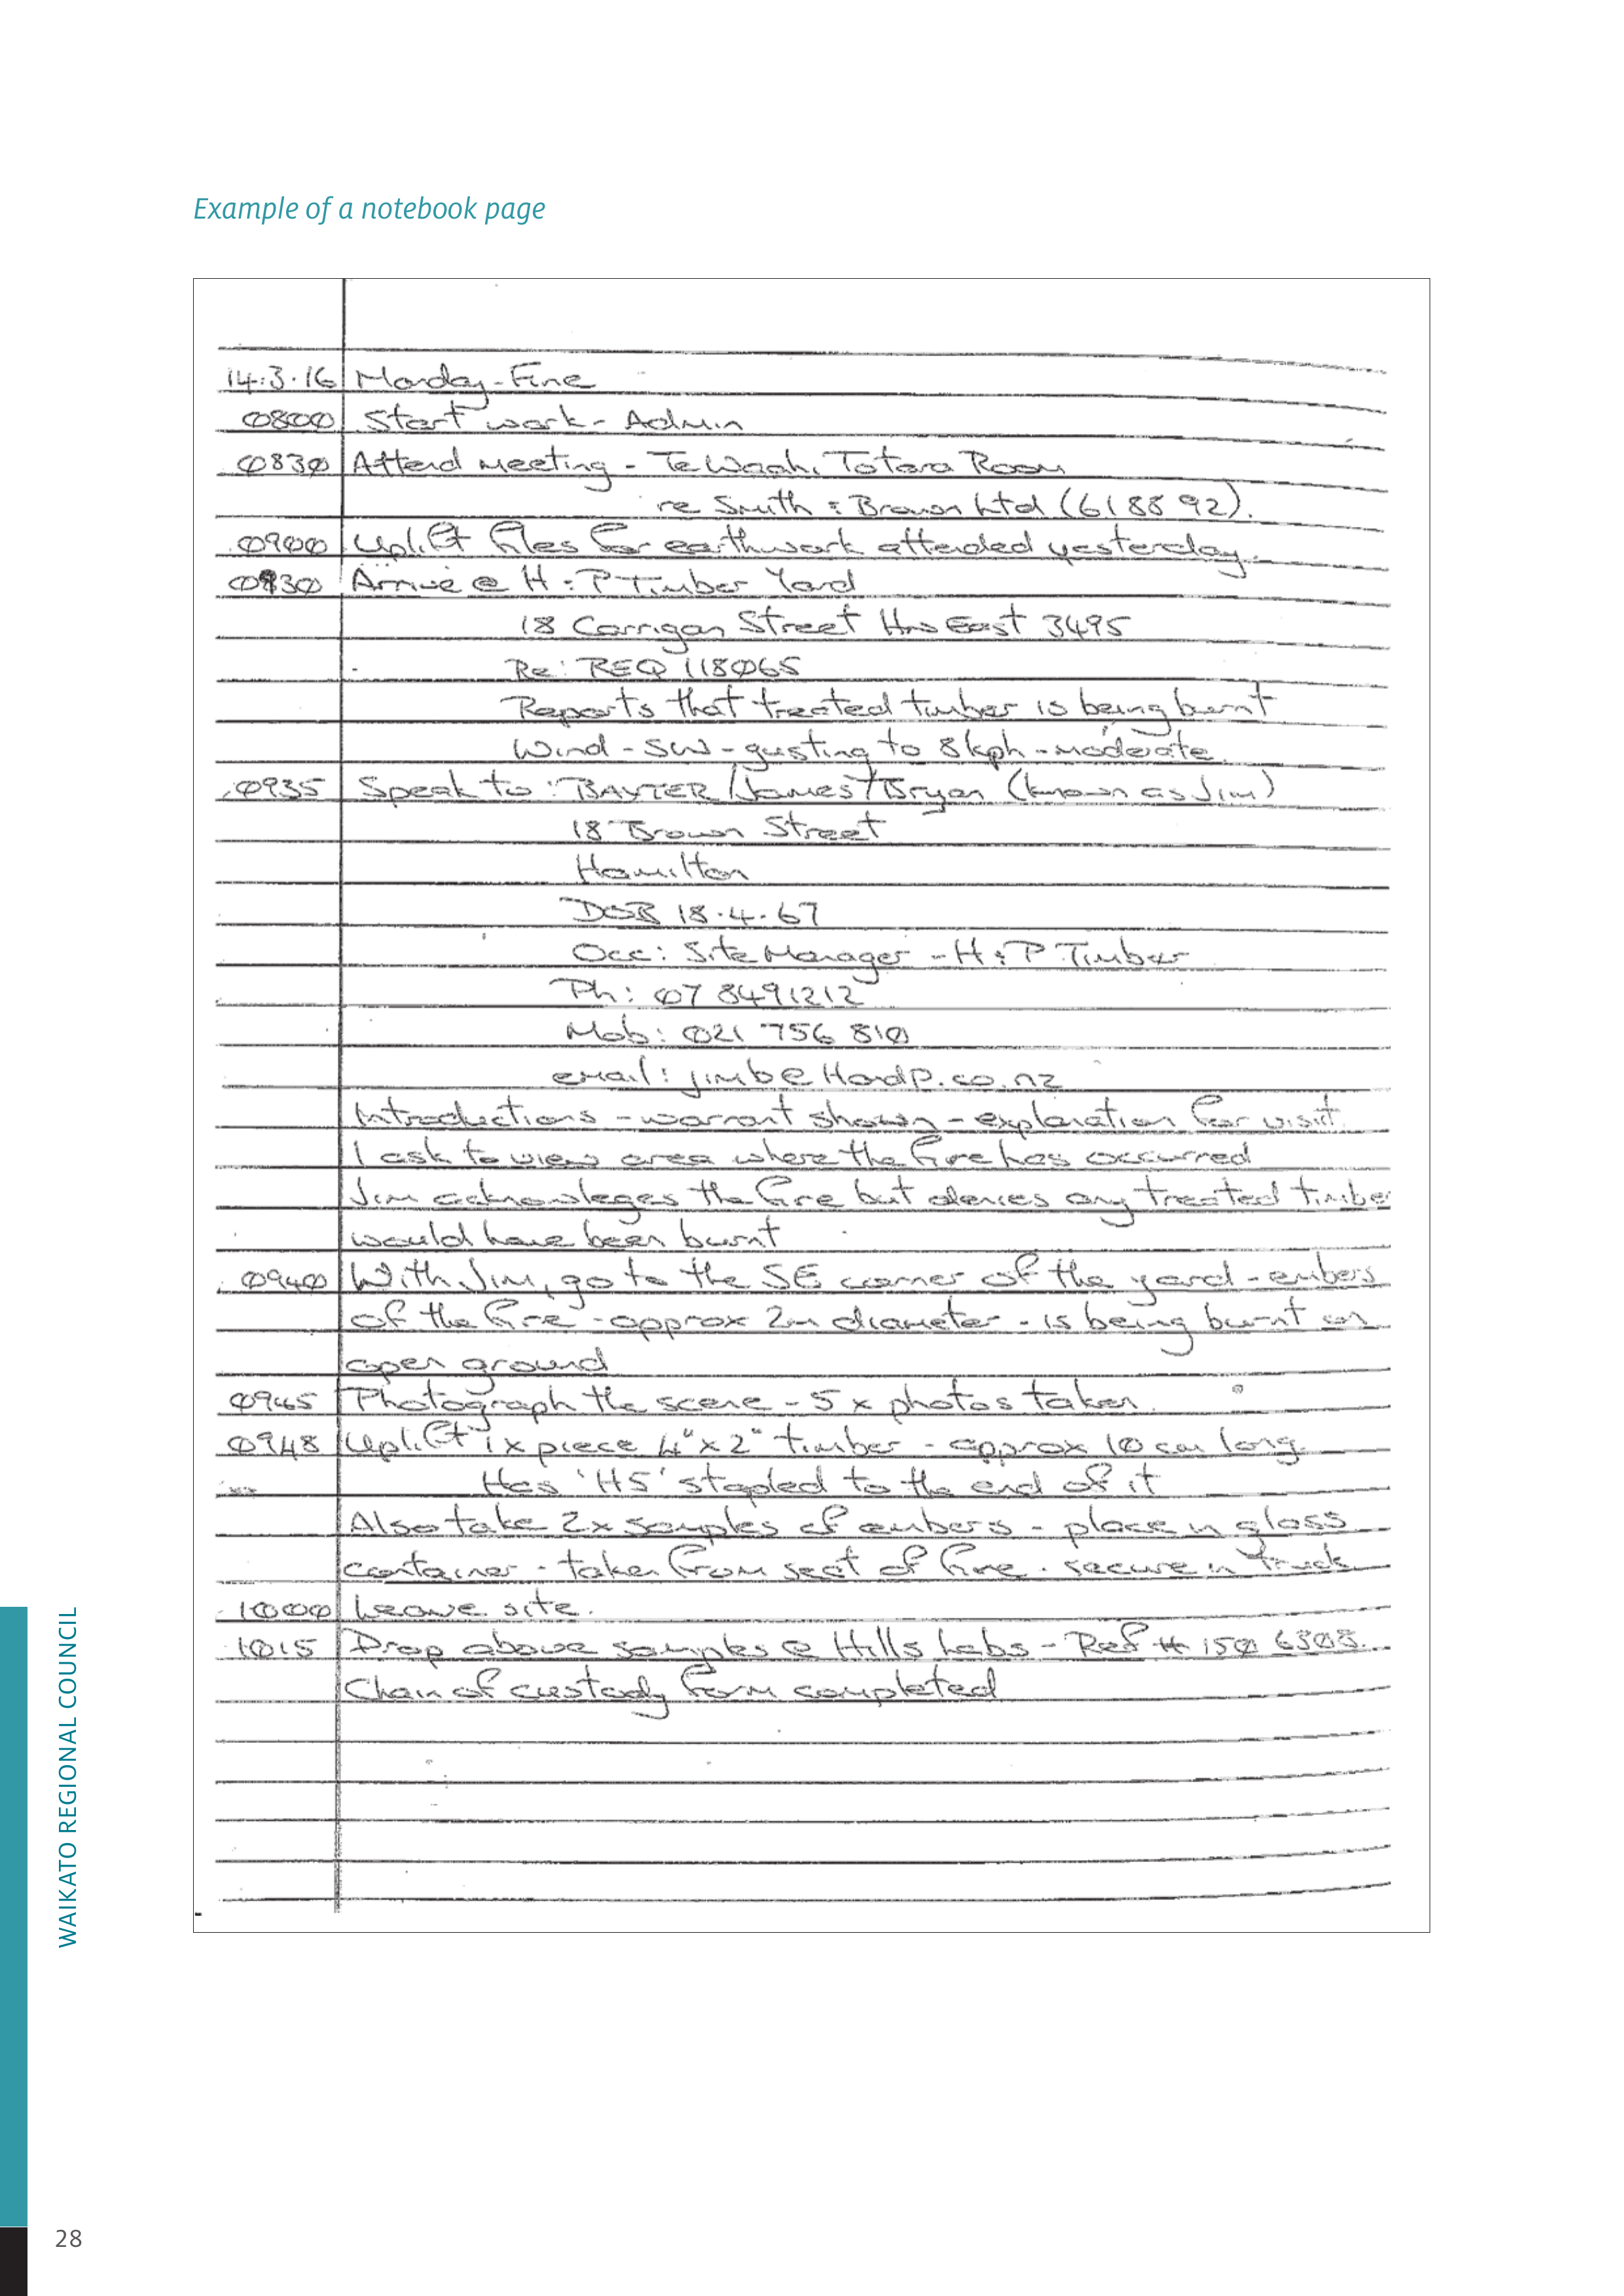 Example of a notebook page
14.3.16 Monday - Fine
0800 Start work - Admin
0830 Attend meeting - Te Waahi Totara Room
re Smith & Brown Ltd (61 88 92).
0900 Uplift files for earthwork attended yesterday.
0930 Arrive @ H & P Timber Yard
18 Corrigan Street Hms East 3495
Re: REQ 118065
Reports that treated timber is being burnt
Wind - SW - gusting to 8kph - moderate
0935 Speak to: BAXTER/James/Bryan (known as Jim)
18 Brown Street
Hamilton
DOB 18.4.67
Occ: Site Manager - H & P Timber
Ph: 07 8491212
Mob: 021 756 810
email: jimb@HandP.co.nz
Introductions - warrant shown - explanation for visit.
I ask to view area where the fire has occurred
Jim acknowleges the fire but denies any treated timber
would have been burnt
0940 With Jim, go to the SE corner of the yard - embers
of the fire - approx 2m diameter - is being burnt on
open ground
0945 Photograph the scene - 5 x photos taken.
0948 Uplift 1 x piece 4" x 2" timber - approx 10 cm long.
Has 'H5' stapled to the end of it
Also take 2 x samples of embers - place in glass
container - taken from seat of fire. secure in truck
1000 Leave site.
1015 Drop above samples @ Hills Labs - Ref # 150 6303.
Chain of custody form completed
WAIKATO REGIONAL COUNCIL
28